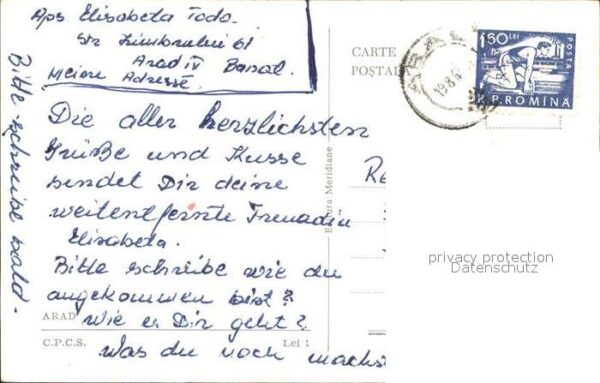 Aps Elisabeta Todo.
str Zimbrului 61
Arad IV Banat.
Meine Adresse.
Bitte schreibe bald.
Die aller herzlichsten
Grüße und Küsse
sendet Dir deine
weitentfernte Freundin
Elisabeta.
Bitte schreibe wie du
angekommen bist?
wie es Dir geht?
was du noch machst
ARAD
C.P.C.S.
Lei 1
Editura Meridiane
CARTE
POȘTALĂ
ARAD
1,60 LEI
POSTA
R.P.ROMINA
Re
privacy protection
Datenschutz